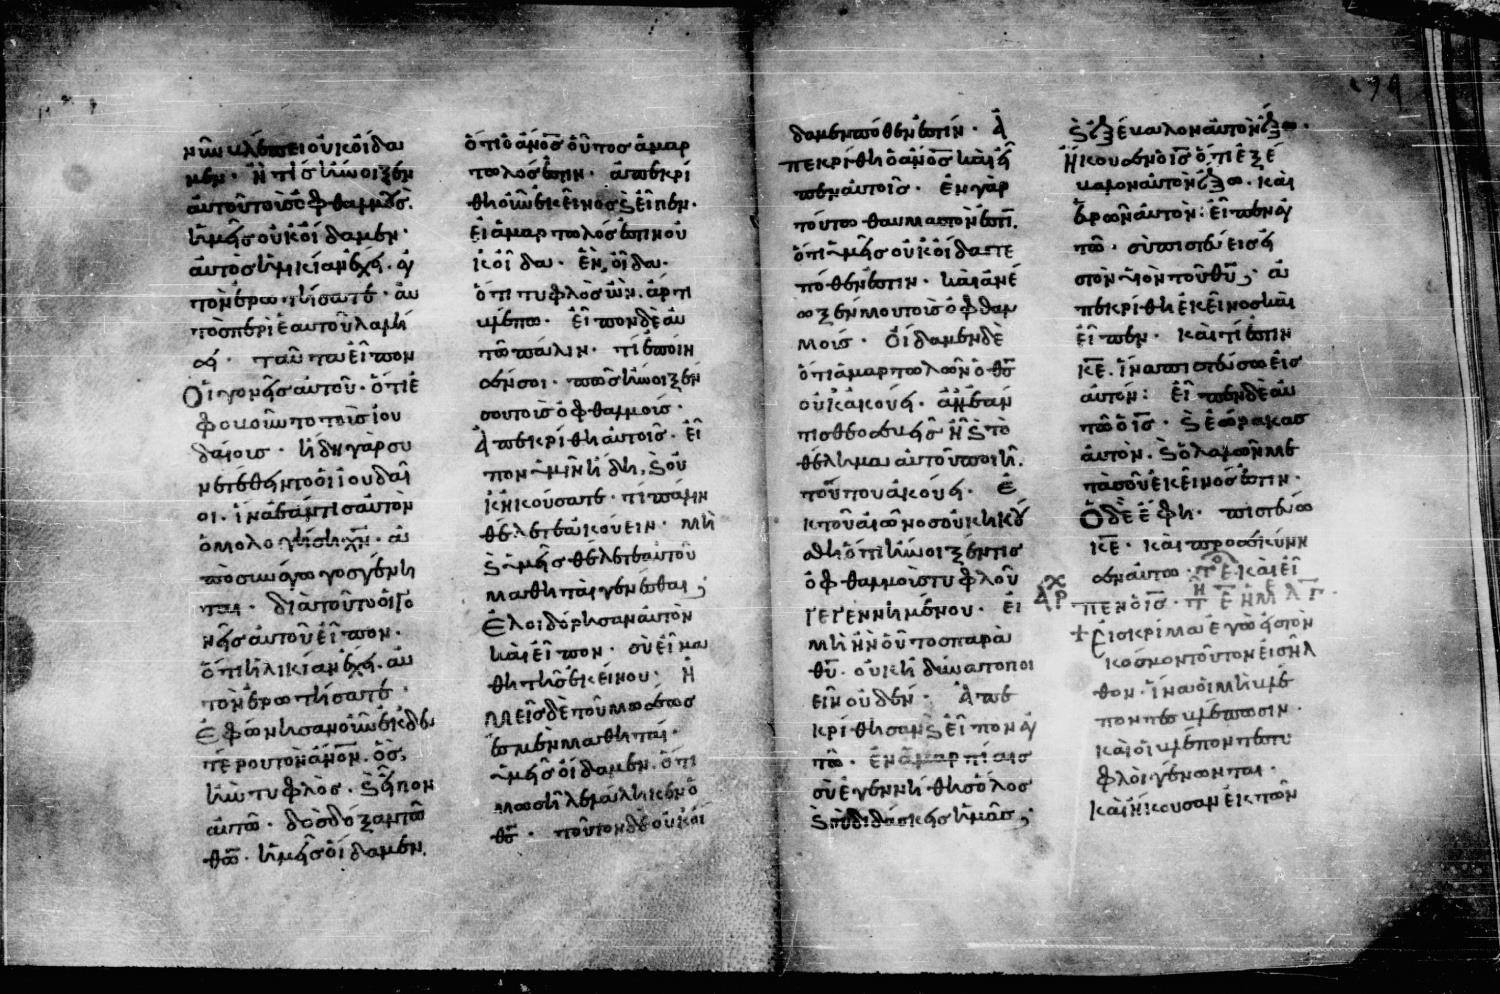 νῦν βλέπει οὐκ οἴδα
μεν· ἢ τίς ἤνοιξεν
αὐτοῦ τοὺς ὀφθαλμούς.
ἡμεῖς οὐκ οἴδαμεν·
αὐτὸς ἡλικίαν ἔχει·
τὸν ἐρωτήσατε· αὐ
τὸς περὶ ἑαυτοῦ λαλή
σει· ταῦτα εἶπον
Οἱ γονεῖς αὐτοῦ· ὅτι ἐ
φοβοῦντο τοὺς ἰου
δαίους· ἤδη γὰρ συ
νετέθειντο οἱ ἰουδαῖ
οι. ἵνα ἐάν τις αὐτὸν
ὁμολογήση χν̅· ἀ
ποσυνάγωγος γένη
ται· διὰ τοῦτο οἱ γο
νεῖς αὐτοῦ εἶπον·
ὅτι ἡλικίαν ἔχει· αὐ
τὸν ἐρωτήσατε·
Ἐφώνησαν οὖν ἐκ δευ
τέρου τὸν ἄνον̅. ὃς
ἦν τυφλὸς· ϗ εἶπον
αὐτῶ· δὸς δόξαν τῶ
θω̅· ἡμεῖς οἴδαμεν.
ὅτι ὁ ἄνος̅ οὗτος ἁμαρ
τωλός ἐστιν· ἀπεκρί
θη οὖν ἐκεῖνος ϗ εἶπεν·
εἰ ἁμαρτωλός ἐστιν οὐ
κ οἶδα· ἓν οἶδα·
ὅτι τυφλὸς ὢν. ἄρτι
βλέπω· εἶπον δὲ αὐ
τῶ πάλιν· τί ἐποίη
σέν σοι· πῶς ἤνοιξέν
σου τοὺς ὀφθαλμούς·
Ἀπεκρίθη αὐτοῖς· εἶ
πον ὑμῖν ἤδη, ϗ οὐ
κ ἠκούσατε· τί πάλιν
θέλετε ἀκούειν· μὴ
ϗ ὑμεῖς θέλετε αὐτοῦ
μαθηταὶ γενέσθαι;
Ἐλοιδόρησαν αὐτὸν
καὶ εἶπον· σὺ εἶ μα
θητὴς ἐκείνου· ἡ
μεῖς δὲ τοῦ μωσέως
ἐσμὲν μαθηταί·
ἡμεῖς οἴδαμεν. ὅτι
μωσῆ λελάληκεν ὁ
θς̅· τοῦτον δὲ οὐκ οἴ
δαμεν πόθεν ἐστίν· Ἀ
πεκρίθη ὁ ἄνος̅ καὶ εἶ
πεν αὐτοῖς· ἐν γὰρ
τούτω θαυμαστόν ἐστι.
ὅτι ὑμεῖς οὐκ οἴδατε
πόθεν ἐστιν· καὶ ἀνέ
ωξέν μου τοὺς ὀφθαλ
μούς· Οἴδαμεν δὲ
ὅτι ἁμαρτωλῶν ὁ θς̅
οὐκ ἀκούει· ἀλλ' ἐάν
τις θεοσεβὴς ἦ ϗ τὸ
θέλημα αὐτοῦ ποιῆ.
τούτου ἀκούει· Ἐ
κ τοῦ αἰῶνος οὐκ ἠκού
σθη ὅτι ἤνοιξέν τις
ὀφθαλμοὺς τυφλοῦ
γεγεννημένου· εἰ
μὴ ἦν οὗτος παρὰ
θυ̅. οὐκ ἠδύνατο ποι
εῖν οὐδέν· Ἀπε
κρίθησαν ϗ εἶπον αὐ
τῶ· ἐν ἁμαρτίαις
σὺ ἐγεννήθης ὅλος
ϗ σὺ διδάσκεις ἡμᾶς;
ϗ ἐξέβαλον αὐτὸν ἔξω·
Ἤκουσεν ὁ ις̅ ὅτι ἐξέ
βαλον αὐτὸν ἔξω· καὶ
εὑρὼν αὐτὸν· εἶπεν αὐ
τῶ· σὺ πιστεύεις εἰ
στὸν υἱὸν τοῦ θυ̅; ἀ
πεκρίθη ἐκεῖνος καὶ
εἶπεν· καὶ τί ἐστιν
κε̅. ἵνα πιστεύσω εἰς
αὐτόν· εἶπεν δὲ αὐ
τῶ ὁ ις̅· ϗ ἑώρακας
αὐτὸν. ϗ ὁ λαλῶν με
τὰ σοῦ ἐκεῖνός ἐστιν·
Ὁ δὲ ἔφη· πιστεύω
κε̅· καὶ προσεκύνη
σεν αὐτῶ· καὶ εἶ
πεν ὁ ις̅·
Εἰς κρίμα ἐγὼ εἰς τὸν
κόσμον τοῦτον εἰσῆλ
θον· ἵνα οἱ μὴ βλέ
ποντες βλέπωσιν·
καὶ οἱ βλέποντες τυ
φλοὶ γένωνται·
καὶ ἤκουσαν ἐκ τῶν